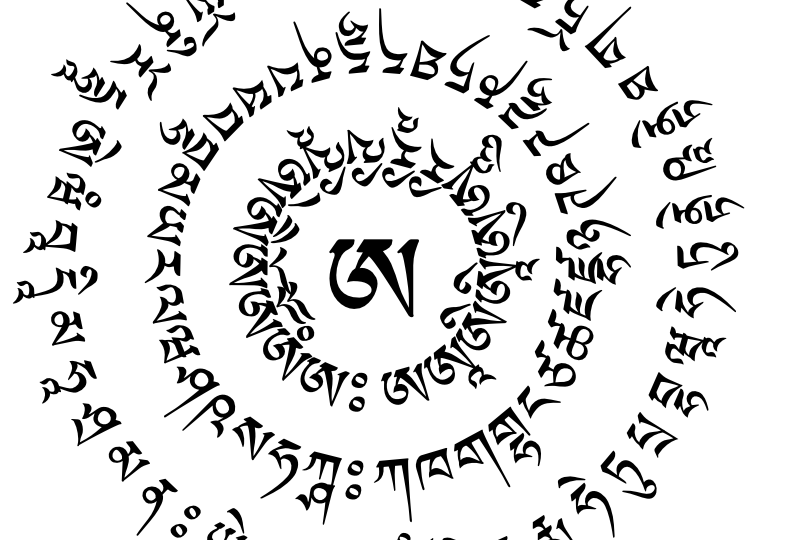 ཨ
ཨཨཱཨིཨཱིཨུཨཱུརྀརཱྀལྀལཱྀཨེཨཻཨོཨཽཨཾཨཿ
ཀཁགགྷངཙཚཛཛྷཉཊཋཌཌྷཎཏཐདདྷནཔཕབབྷམཡརལཝཤཥསཧཀྵཿ
དྷརྨཱཧེཏུཔྲབྷཝཱཧེཏུནྟེཥཱནྟཐཱག
རོདྷཨེཝཾབཱདཱིམཧཱཤྲམཎཿ